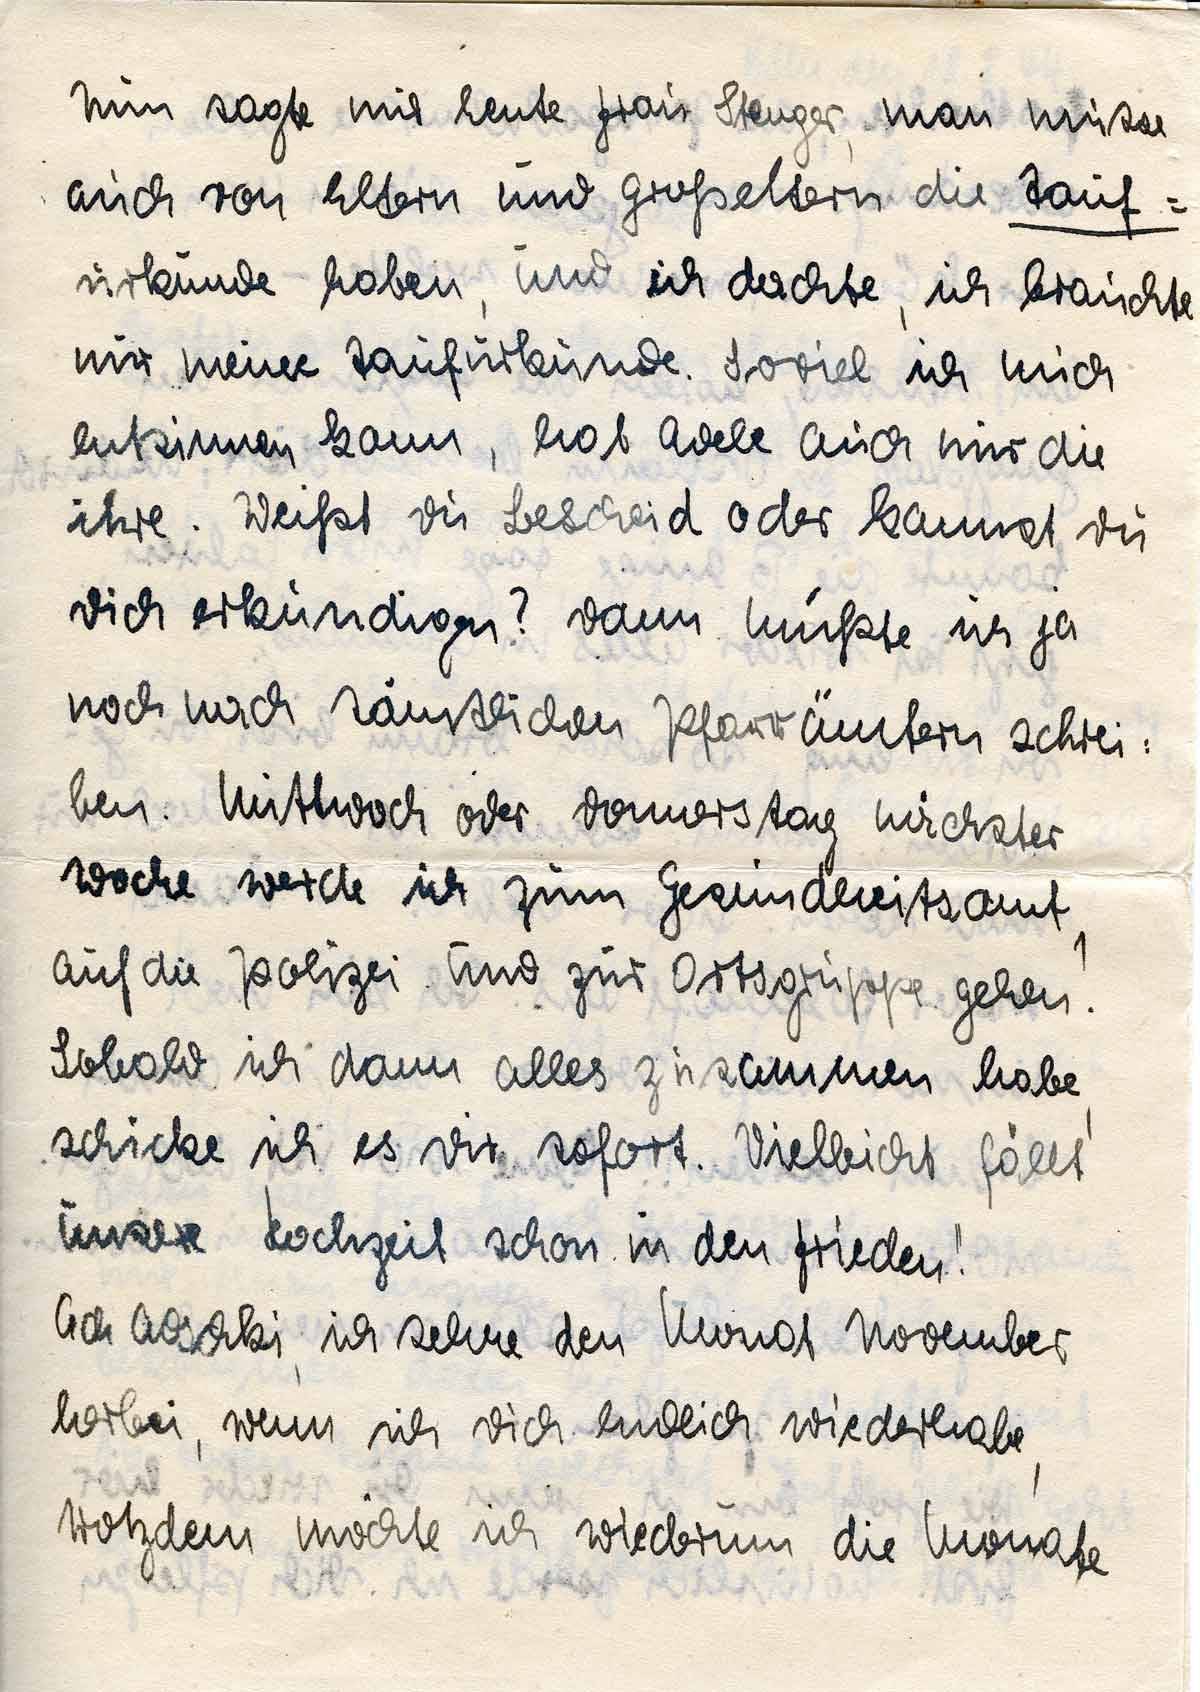 Nun sagte mir heute Frau Stenger, man müsse
auch von Eltern und Großeltern die Tauf=
urkunde haben, und ich dachte, ich brauchte
nur meine Taufurkunde. Soviel ich mich
entsinnen kann, hat Adele auch nur die
ihre. Weißt Du Bescheid oder kannst Du
Dich erkundigen? Dann müßte ich ja
noch nach sämtlichen Pfarrämtern schrei=
ben. Mittwoch oder Donnerstag nächster
Woche werde ich zum Gesundheitsamt,
auf die Polizei und zur Ortsgruppe gehen!
Sobald ich dann alles zusammen habe,
schicke ich es Dir sofort. Vielleicht fällt
unsere Hochzeit schon in den Frieden!
Ach ich sehne den Monat November
herbei, wenn ich Dich endlich wiederhabe,
trotzdem möchte ich wiederum die Monate